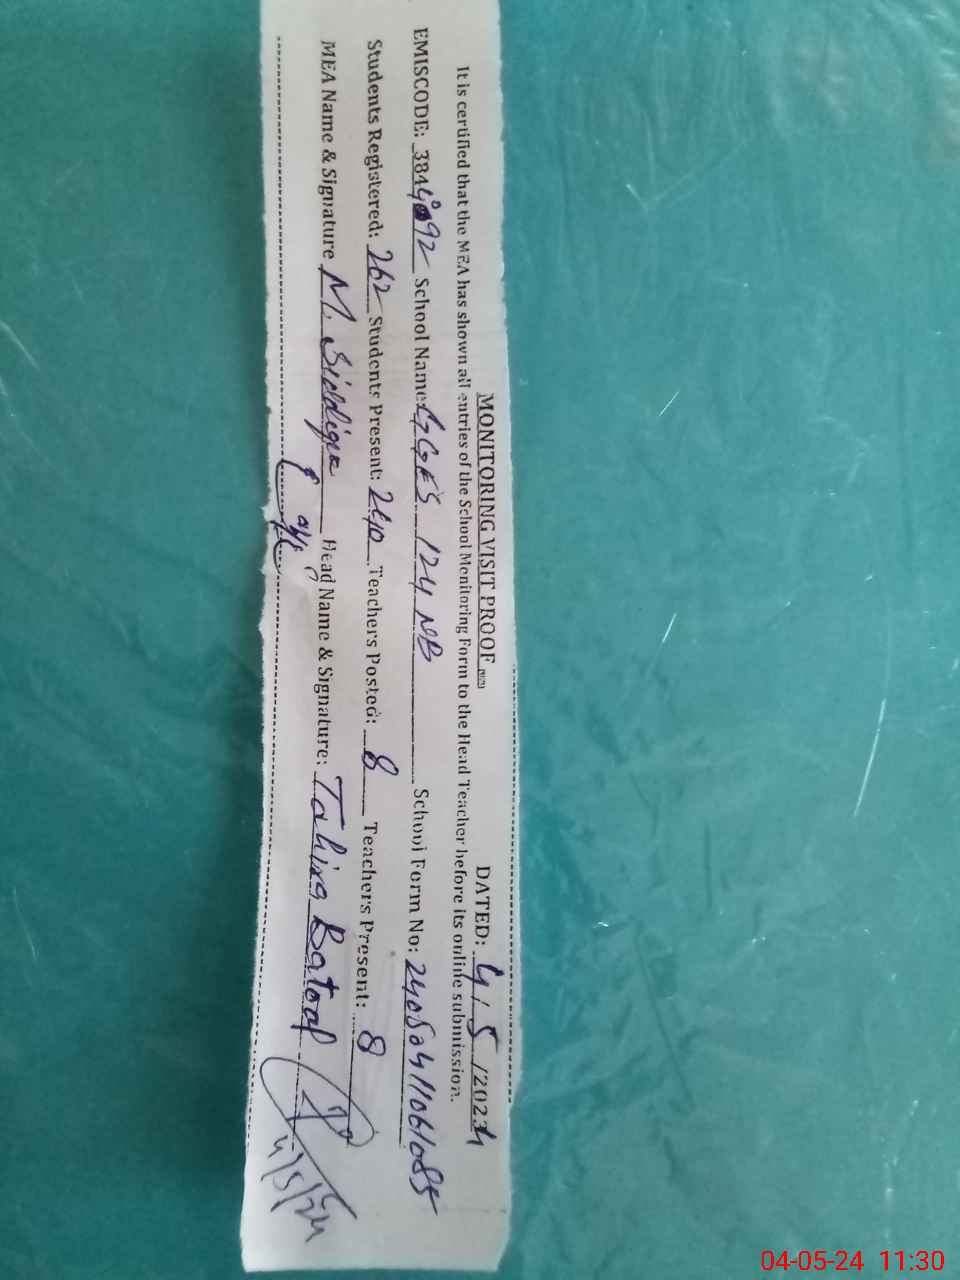 MONITORING VISIT PROOF DATED: 4/5/2024
It is certified that the MEA has shown all entries of the School Monitoring Form to the Head Teacher before its online submission.
EMISCODE: 38440092 School Name: GGES 124 NB School Form No: 24050411061085
Students Registered: 262 Students Present: 240 Teachers Posted: 8 Teachers Present: 8
MEA Name & Signature M. Siddique Head Name & Signature: Tahira Batool
4/5/24
04-05-24 11:30